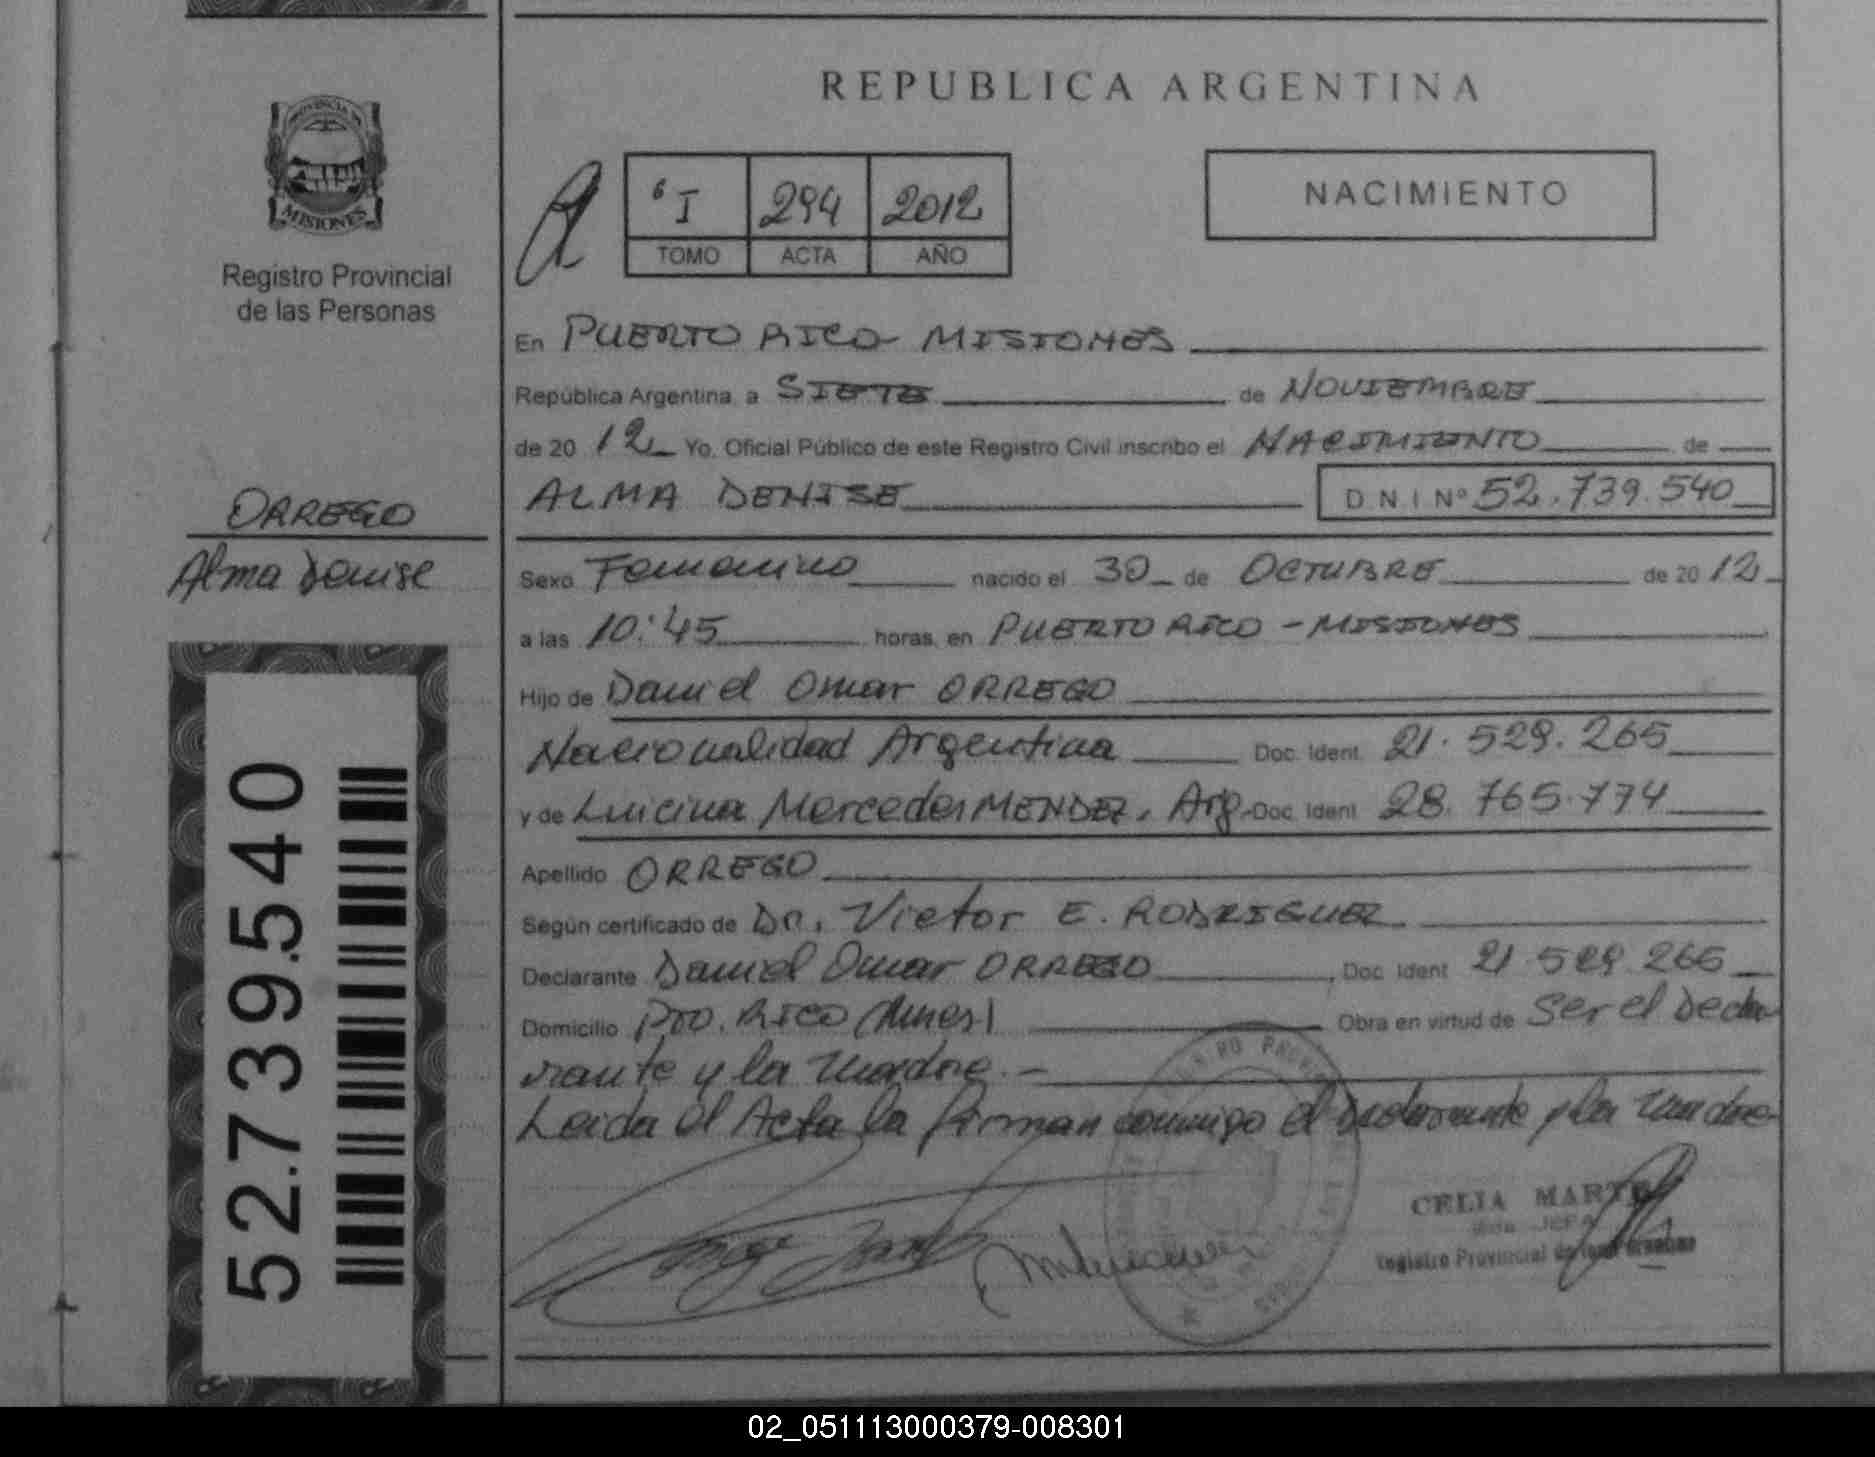 PROVINCIA DE
MISIONES
Registro Provincial
de las Personas
ORREGO
Alma Denise
52.739.540
REPUBLICA ARGENTINA
6 I 294 2012
TOMO ACTA AÑO
NACIMIENTO
En PUERTO RICO - MISIONES
República Argentina, a SIETE de NOVIEMBRE
de 20 12 Yo, Oficial Público de este Registro Civil inscribo el NACIMIENTO de
ALMA DENISE D N I Nº 52.739.540
Sexo Femenino nacido el 30 de OCTUBRE de 20 12
a las 10:45 horas, en PUERTO RICO - MISIONES
Hijo de Daniel Omar ORREGO
Nacionalidad Argentina Doc. Ident. 21.529.265
y de Luicina Mercedes MENDEZ, Arg. Doc. Ident. 28.765.774
Apellido ORREGO
Según certificado de Dr. Victor E. RODRIGUEZ
Declarante Daniel Omar ORREGO, Doc. Ident 21.529.265
Domicilio Pto. RICO (Mnes) Obra en virtud de Ser el Decla
rante y la madre. -
Leida el Acta la firman conmigo el declarante y la madre
CELIA MARTE
JEFA
Registro Provincial de las Personas
02_051113000379-008301